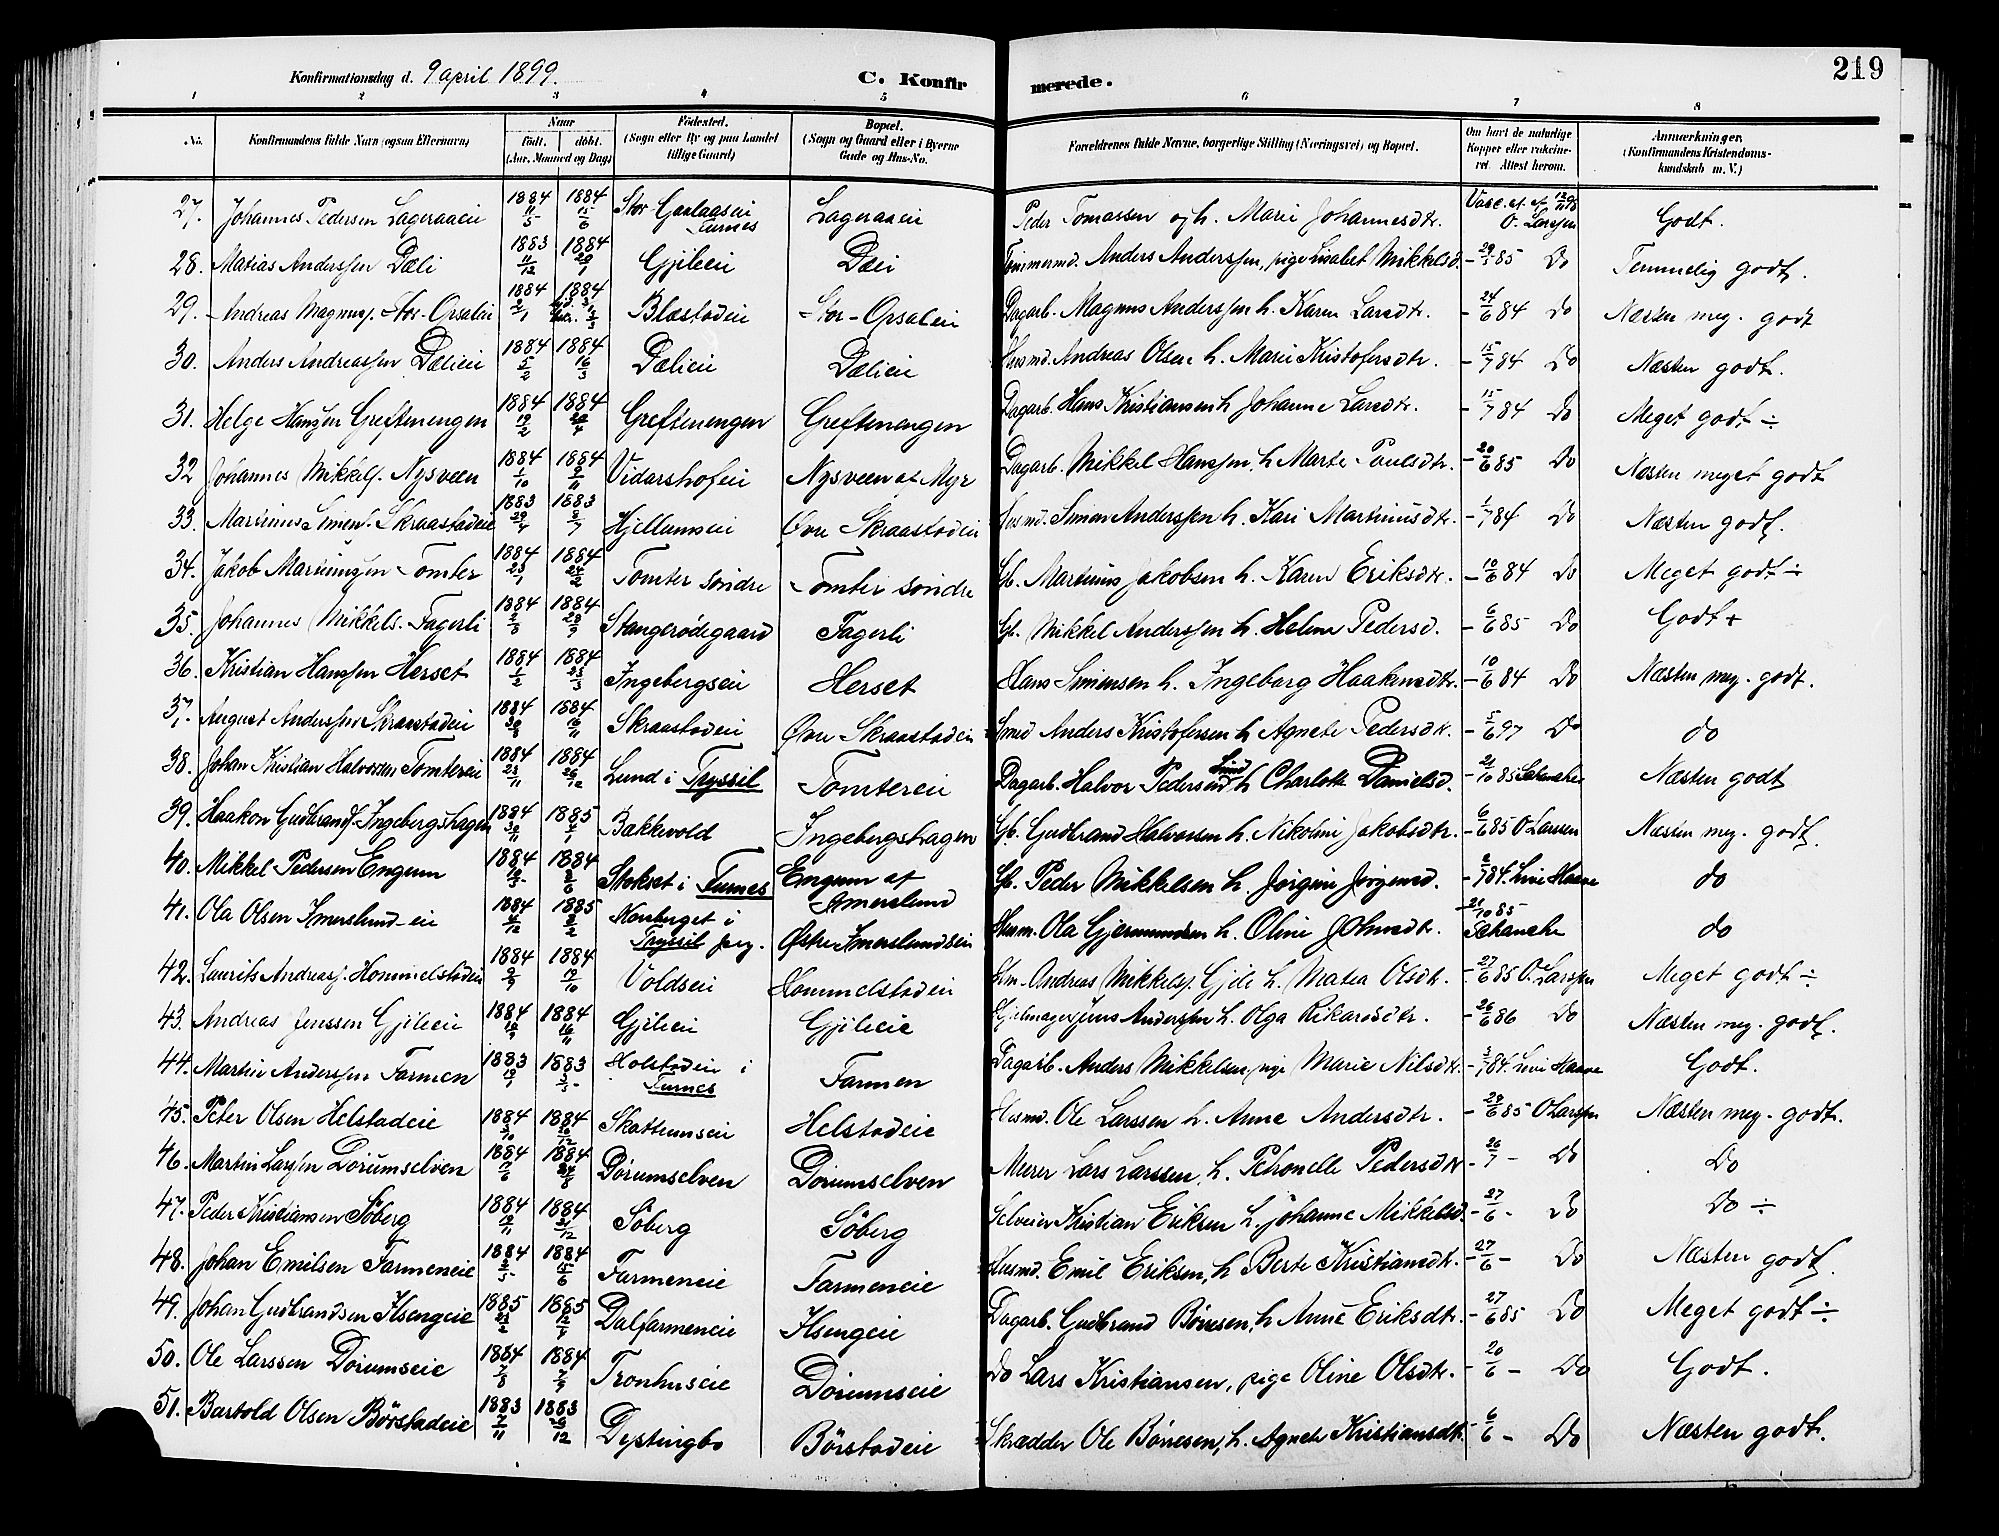 219
Konfirmationsdag d. 9 april 1899.
C. Konfirmerede.
1 2 3 4 5 6 7 8
No. Konfirmandens fulde Navn (ogsaa Efternavn) Naar födt. döbt. (Aar, Maaned og Dag) Födested. (Sogn eller By og paa Landet tillige Gaard) Bopæl. (Sogn og Gaard eller i Byerne Gade og Hus-No. Forældrenes fulde Navne, borgerlige Stilling (Næringsvei) og Bopæl. Om havt de naturlige Kopper eller vakcineret. Attest herom. Anmærkninger. (Konfirmandens Kristendomskundskab m. V.)
27. Johannes Pedersen Lageraaeie 1884 11/5 1884 15/6 Stor Gaalaaseie Furnes Lageraaeie Peder Tomassen og h. Marie Johannesdtr. O. Larssen Godt.
28. Matias Anderssen Dæli 1883 11/12 1884 20/1 Gjileeie Dæli Tömmermd. Anders Anderssen, pige Lisabet Mikkelsd. 85 Do Temmelig godt.
29. Andreas Magnuss. Stor-Opsaleie 1884 2/1 1884 Blæstadeie Stor-Opsaleie Dagarb. Magnus Anderssen h. Karen Larsdtr. - 24/6 84 Do Næsten meg. godt
30. Anders Andreassen Dælieie 1884 5/2 1884 16/3 Dælieie Dælieie Husmd. Andreas Olsen h. Marie Kristofersdtr. - 15/7 84 Do Næsten godt.
31. Helge Hanssen Greftenengen 1884 19/2 1884 20/4 Greftenengen Greftenengen Dagarb. Hans Kristiansen h Johanne Larsdtr. - 15/7 84 Do Meget godt ÷
32 Johannes Mikkels. Nysveen 1884 1/10 1884 9/11 Vidarshofeie Nysveen af Myr Dagarb. Mikkel Hanssen, h Marte Paulsdtr. - 20/6 85 Do Næsten meget godt
33. Martinus Simens. Skraastadeie 1883 29/4 1883 8/7 Hjellumseie Övre Skraastadeie Husmd. Simon Anderssen h. Kari Martinusdtr. - 1/7 84 Do Næsten godt.
34. Jakob Martinussen Tomter 1884 23/1 1884 24/2 Tomter söndre Tomter söndre Gb. Martinus Jakobsen h. Karen Eriksdtr. - 10/6 84 Do Meget godt ÷
35. Johannes Mikkels. Fagerli 1884 2/8 1884 28/9 Stangerödegaard Fagerli Gb. Mikkel Anderssen h. Helene Pedersd. - 6/6 85 Do Godt +
36. Kristian Hanssen Herset 1884 1/2 1884 23/3 Ingebergseie Herset Hans Simensen h. Ingeborg Haakensdtr. - 10/6 84 Do Næsten meg. godt.
37. August Anderssen Skraastadeie 1884 30/8 1884 16/11 Skraastadeie Övre Skraastadeie Smed Anders Kristofersen h Agnete Pedersdtr. - 5/6 97 Do do
38. Johan Kristian Halvorsen Tomtereie 1884 23/11 1884 26/12 Lund i Tryssil Tomtereie Dagarb. Halvor Pedersen Lund h Charlotte Danielsd. - 21/10 85 Schanche Næsten godt
39. Haakon Gudbrands. Ingebergshagen 1884 30/11 1885 4/1 Bakkevold Ingebergshagen Gb. Gudbrand Halvorsen h. Nikoline Jakobsdtr. - 6/6 85 O Larssen Næsten meg. godt.
40. Mikkel Pedersen Engum 1884 1884 Stokset i Furnes Engum af Imerslund Gb. Peder Mikkelsen h. Jörgine Jörgensd. 84. Haave do
41. Ola Olsen Imerslund-eie 1884 1885 2/2 Norberget i Tryssil prg. Östre Imerslundseie Husm. Ola Gjermundsen h. Oline Johnsdtr. - 21/10 85 Schanche do
42. Laurits Andreass. Hommelstadeie 1884 9/9 1884 19/10 Voldseie Hommelstadeie Hm. Andreas Mikkels. Gjile h. Matea Olsdtr. - 27/6 85 O. Larssen Meget godt ÷
43. Andreas Jenssen Gjileeie 1884 1884 16/11 Gjileeie Gjileeie Hjulmager Jens Anderssen h. Olga Rikardsdtr. - 26/6 86 Do Næsten meg. godt.
44. Martin Anderssen Farmen 1883 1883 Holstadeie i Furnes Farmen Dagarb. Anders Mikkelsen, pige Marie Nilsdtr. 84. Haave Godt.
45. Peter Olsen Helstadeie 1884 1884 Skattumseie Helstadeie Husmd. Ole Larssen h. Anne Andersdtr. 85 O Larssen Næsten meg. godt.
46. Martin Larssen Dörumselven 1884 17/6 1884 24/8 Dörumselven Dörumselven Murer Lars Larssen, h. Petronelle Pedersdtr - 26/7 - Do Do
47. Peder Kristiansen Söberg 1884 1884 21/12 Söberg Söberg Selveier Kristian Eriksen h. Johanne Mikkelsd. - 27/6 - Do Do ÷
48. Johan Emilsen Farmeneie 1884 2/5 1884 15/6 Farmeneie Farmeneie Husmd. Emil Eriksen, h Berte Kristiansdtr. - 27/6 - Do Næsten godt.
49. Johan Gudbrandsen Ilsengeie 1885 22/2 1885 12/4 Dalfarmeneie Ilsengeie Dagarb. Gudbrand Börresen, h Anne Eriksdtr. - 27/6 85 Do Meget godt ÷
50. Ole Larssen Dörumseie 1884 7/8 1884 7/9 Tronhuseie Dörumseie Do Lars Kristiansen, pige Oline Olsdtr. - 20/6 - Do Godt.
51. Bartold Olsen Börstadeie 1883 7/11 1883 Dystingbo Börstadeie Skrædder Ole Börresen, h. Agnete Kristiansdtr. - 6/6 - Do Næsten godt.